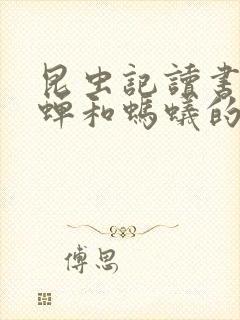 昆虫記讀書
蟬和螞蟻的
傅思